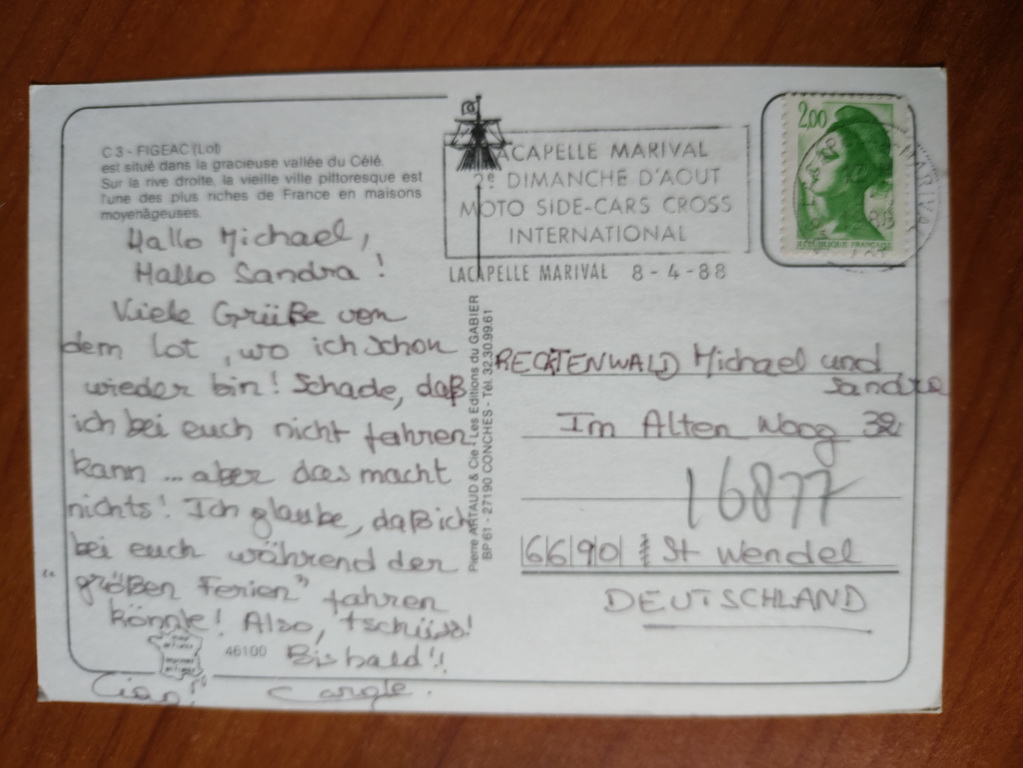 C 3 - FIGEAC (Lot)
est situé dans la gracieuse vallée du Célé.
Sur la rive droite, la vieille ville pittoresque est
l'une des plus riches de France en maisons
moyenâgeuses.
Hallo Michael,
Hallo Sandra !
Viele Grüße von
dem Lot, wo ich schon
wieder bin! Schade, daß
ich bei euch nicht fahren
kann ... aber das macht
nichts! Ich glaube, daß ich
bei euch während der
"größen Ferien" fahren
könnte! Also, tschüss!
Bis bald!!
Ciao!
46100
Pierre ARTAUD & Cie - Les Editions du GABIER
BP 61 - 27190 CONCHES - Tél. 32.30.99.61
LACAPELLE MARIVAL
2e DIMANCHE D'AOUT
MOTO SIDE-CARS CROSS
INTERNATIONAL
LACAPELLE MARIVAL 8-4-88
2,00
REPUBLIQUE FRANÇAISE
RECKTENWALD Michael und
Sandra
Im Alten Woog 32
16877
6690 St Wendel
DEUTSCHLAND